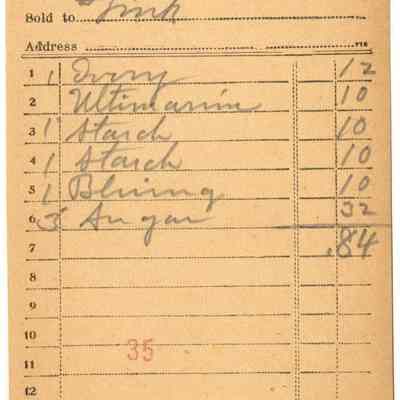 Sold to
Address
1 1 Ivory 12
2 Ultimarim 10
3 1 Starch 10
4 1 Starch 10
5 1 Bluing 10
6 3 Sugar 32
7 .84
8
9
10
35
11
12